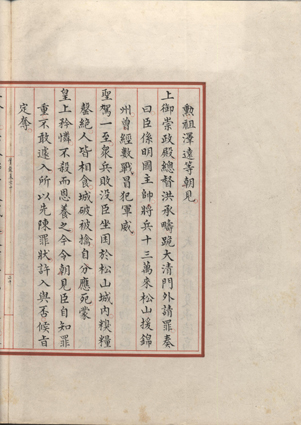 勳祖澤遠等朝見
上御崇政殿總督洪承疇跪大清門外請罪奏
曰臣係明國主帥將兵十三萬來松山援錦
州曾經數戰冒犯軍威
聖駕一至衆兵敗沒臣坐困於松山城內糗糧
罄絕人皆相食城破被擒自分應死蒙
皇上矜憐不殺而恩養之令令朝見臣自知罪
重不敢遽入所以先陳罪狀許入與否候旨
定奪